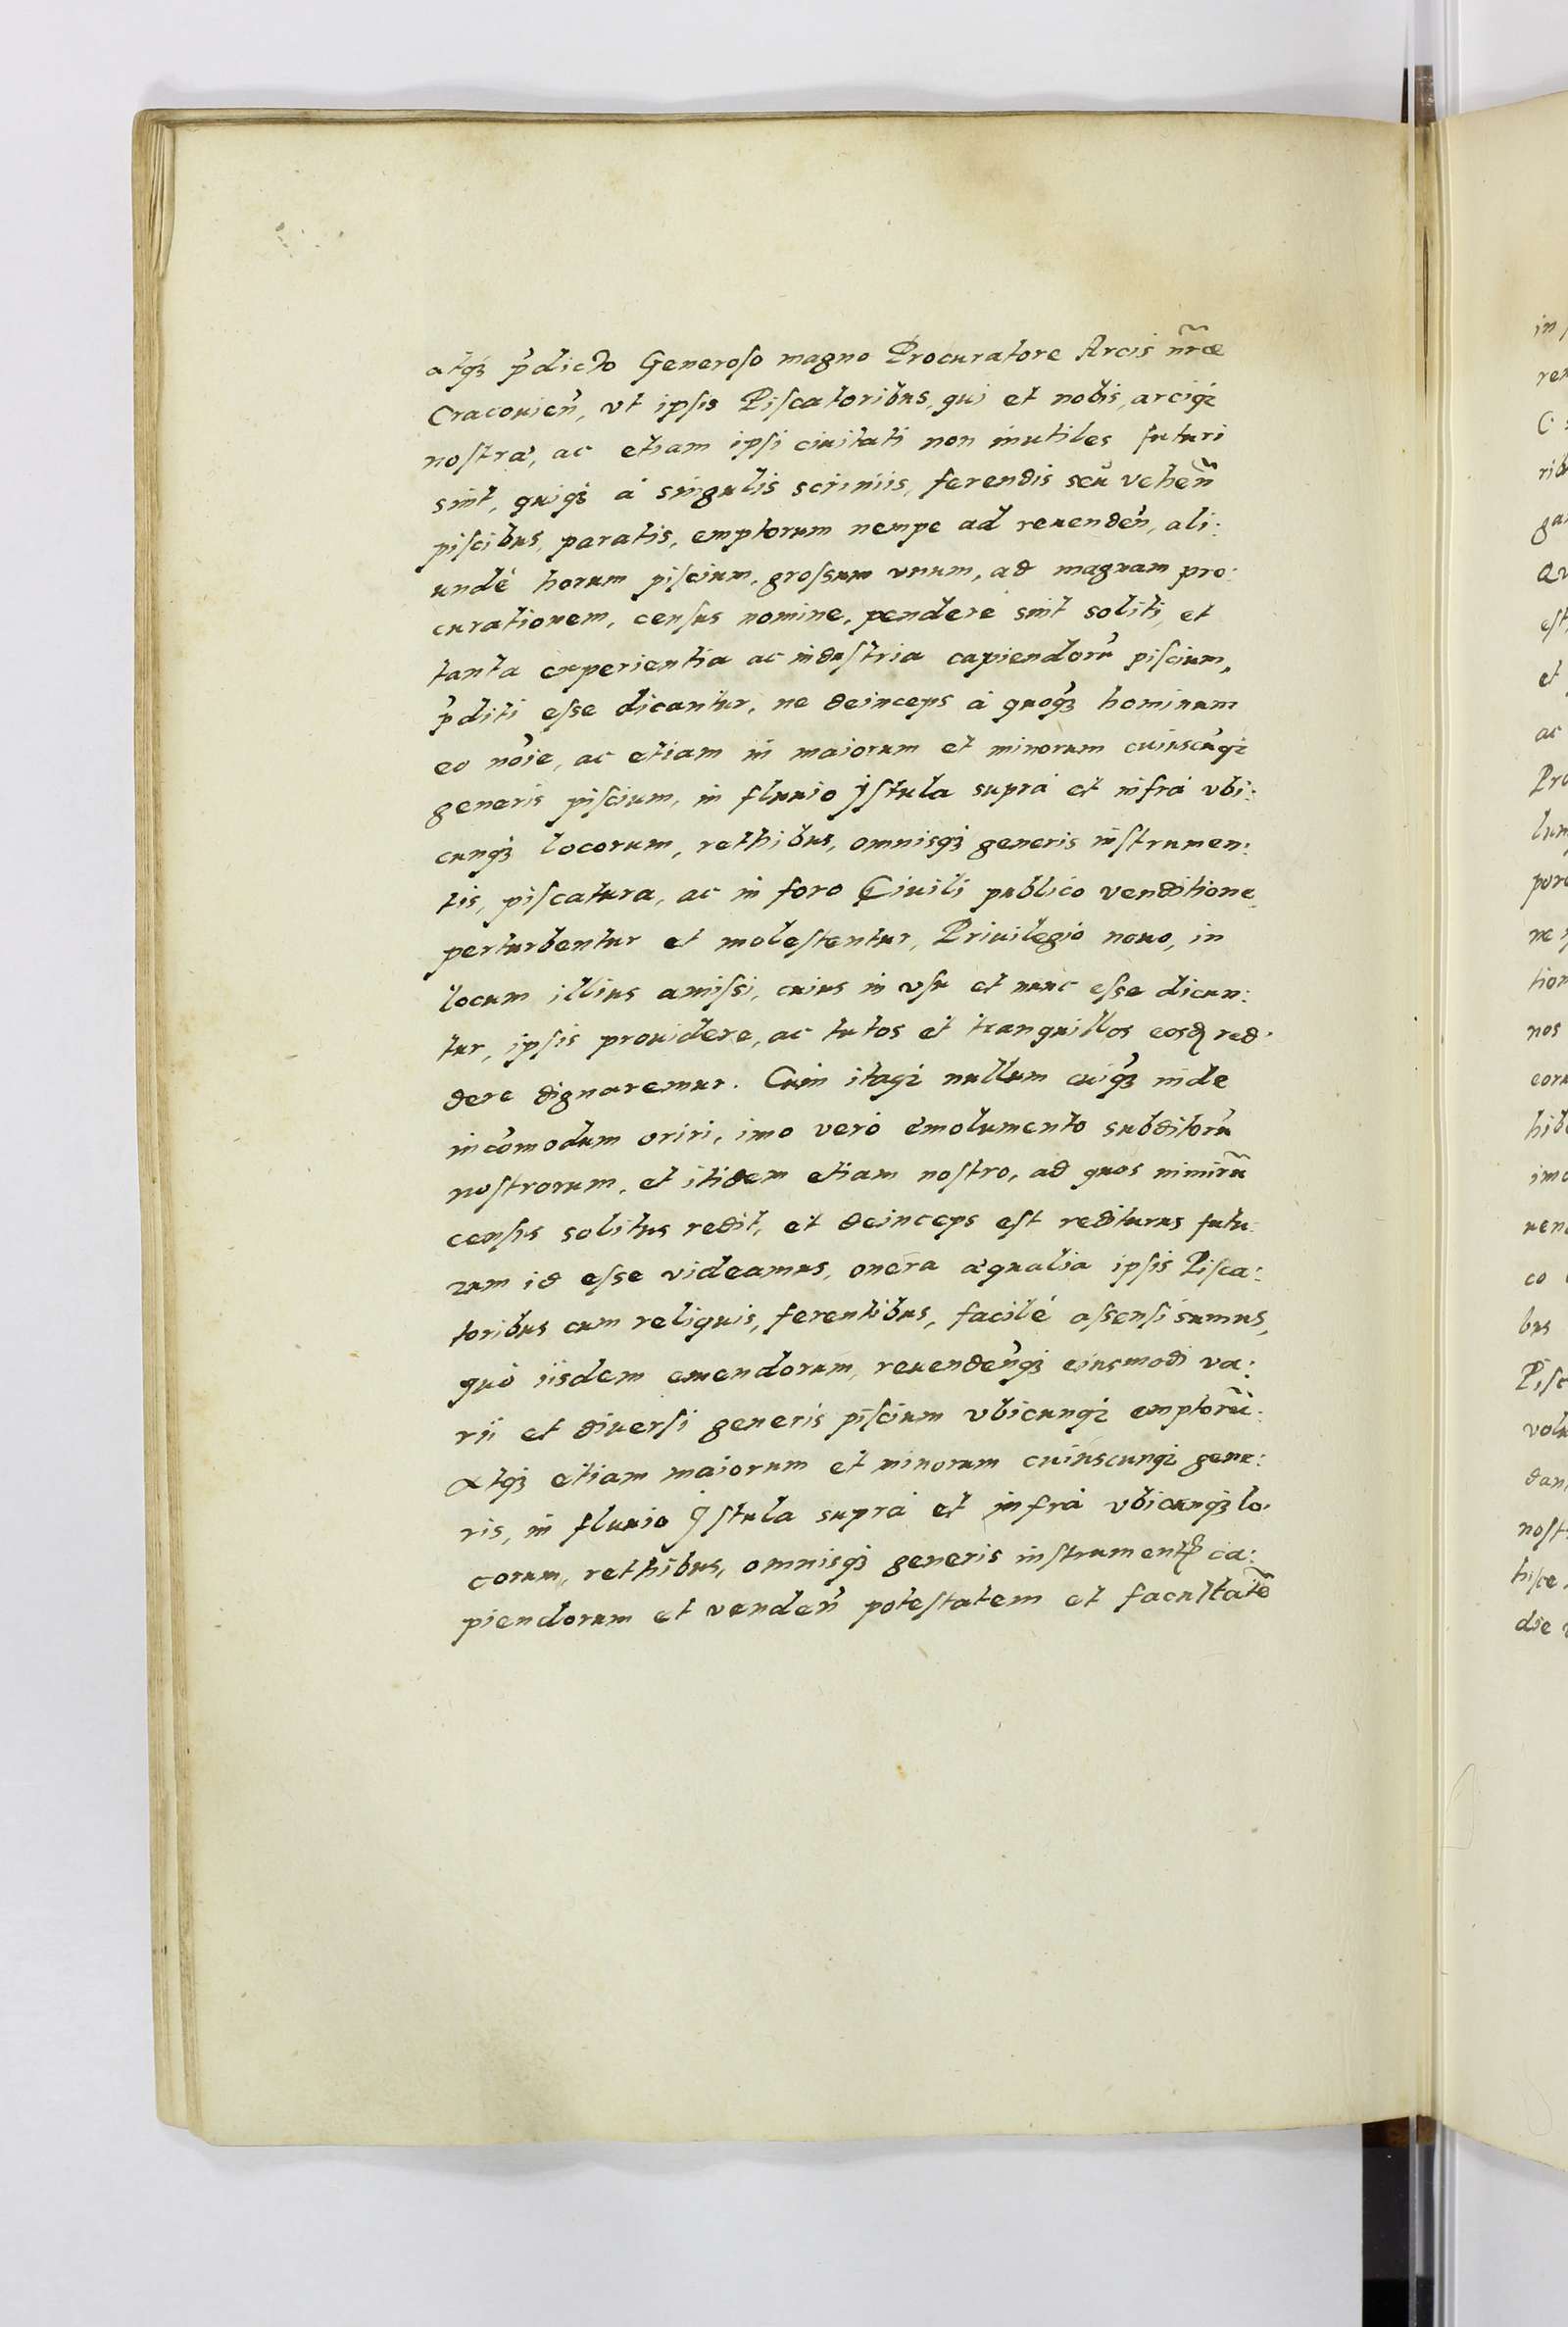 atq₃ p̄dicto Generoſo magno Procuratore Arcis nr̃æ
Cracouien̄, vt ipſis Piſcatoribus, qui et nobis, arciq₃
noſtræ, ac etiam ipſi ciuitati non inutiles futuri
sint, quiq₃ à singulis scriniis, ferendis seu vehen̄
piſcibus, paratis, emptorum nempe ad reuenden̄, ali:
undè horum piſcium, groſsum vnum, ad magnam pro:
curationem, cenſus nomine, pendere sint soliti, et
tanta experientia ac induſtria capiendorū piſcium,
p̄diti eſse dicantur, ne deinceps à quoq₃ hominum
eo nōie, ac etiam in maiorum et minorum cuiuscūq₃
generis piſcium, in fluuio Iſtula suprà et infrà vbi:
cunq₃ locorum, rethibus, omnisq₃ generis inſtrumen:
tis, piſcatura, ac in foro Ciuili publico venditione,
perturbentur et moleſtentur, Priuilegio nouo, in
locum illius amiſsi, cuius in vſu et nunc eſse dicun:
tur, ipſis prouidere, ac tutos et tranquillos eosd̄ red:
dere dignaremur. Cum itaq₃ nullum cuiq₃ inde
incōmodum oriri, imo verò emolumento subditorū
noſtrorum, et itidem etiam noſtro, ad quos nimirū
cenſus solitus redit, et deinceps eſt rediturus futu:
rum id eſse videamus, onera æqualia ipſis Piſca:
toribus cum reliquis, ferentibus, facilè aſsenſi sumus,
quò iisdem emendorum, reuenden̄q₃ eiusmodi va:
rii et diuerſi generis piſcium vbicunq₃ emptorū:
Atq₃ etiam maiorum et minorum cuiuscunq₃ gene:
ris, in fluuio Iſtula suprà et infrà vbicunq₃ lo:
corum, rethibus, omnisq₃ generis inſtrumentꝭ ca:
piendorum et venden̄ poteſtatem et facultatē